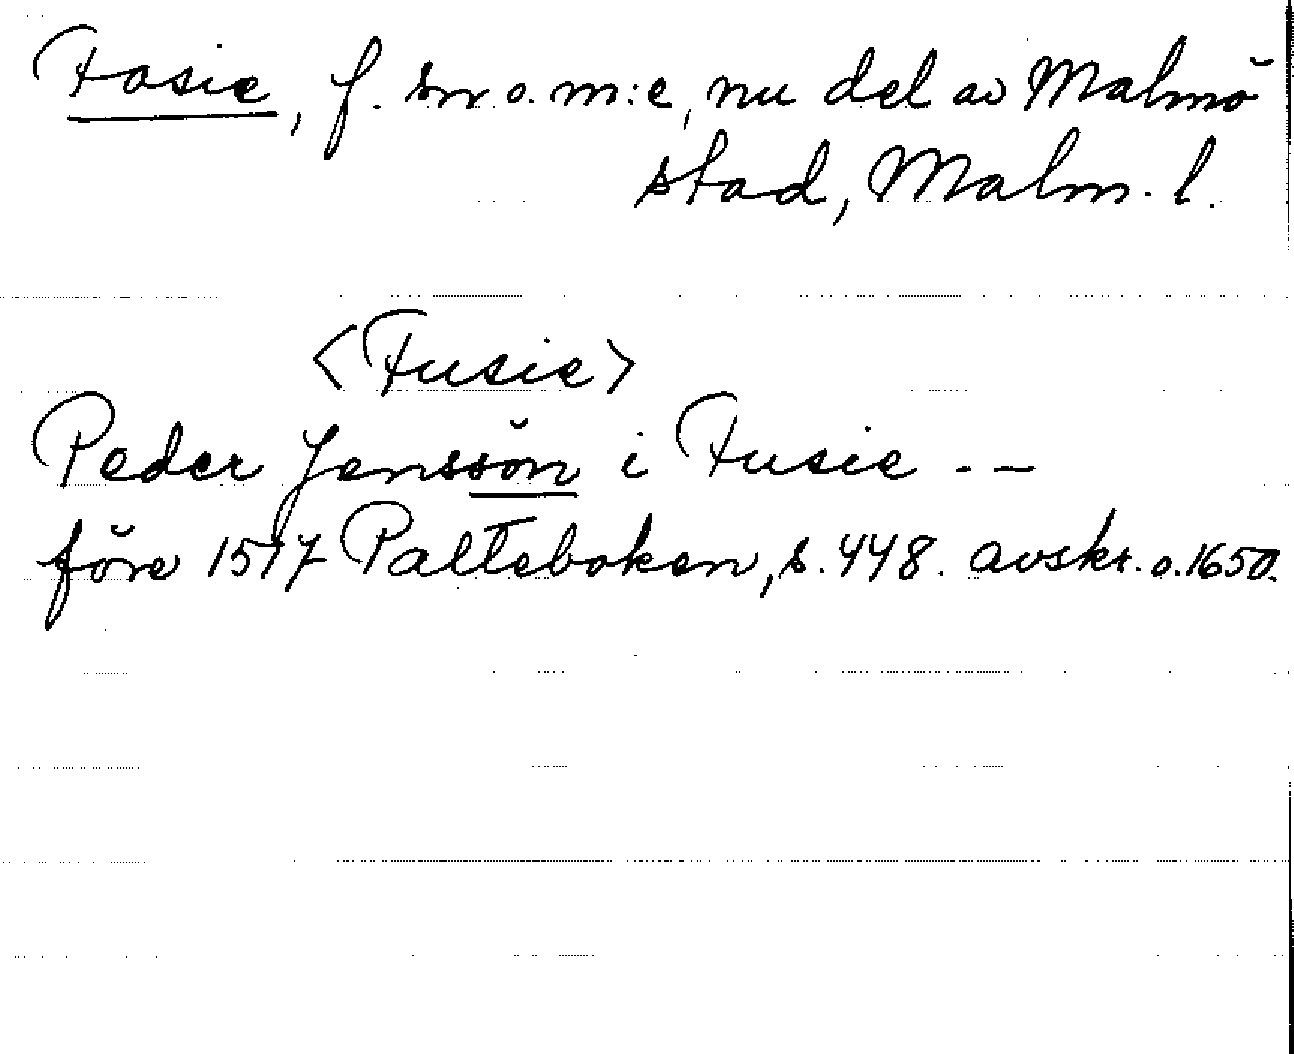 Fosie, f. sn o. m:e, nu del av Malmö
stad, Malm. l.
<Fusie>
Peder Jenssön i Fusie --
före 1517 Palteboken, s. 448. avskr. o. 1650.